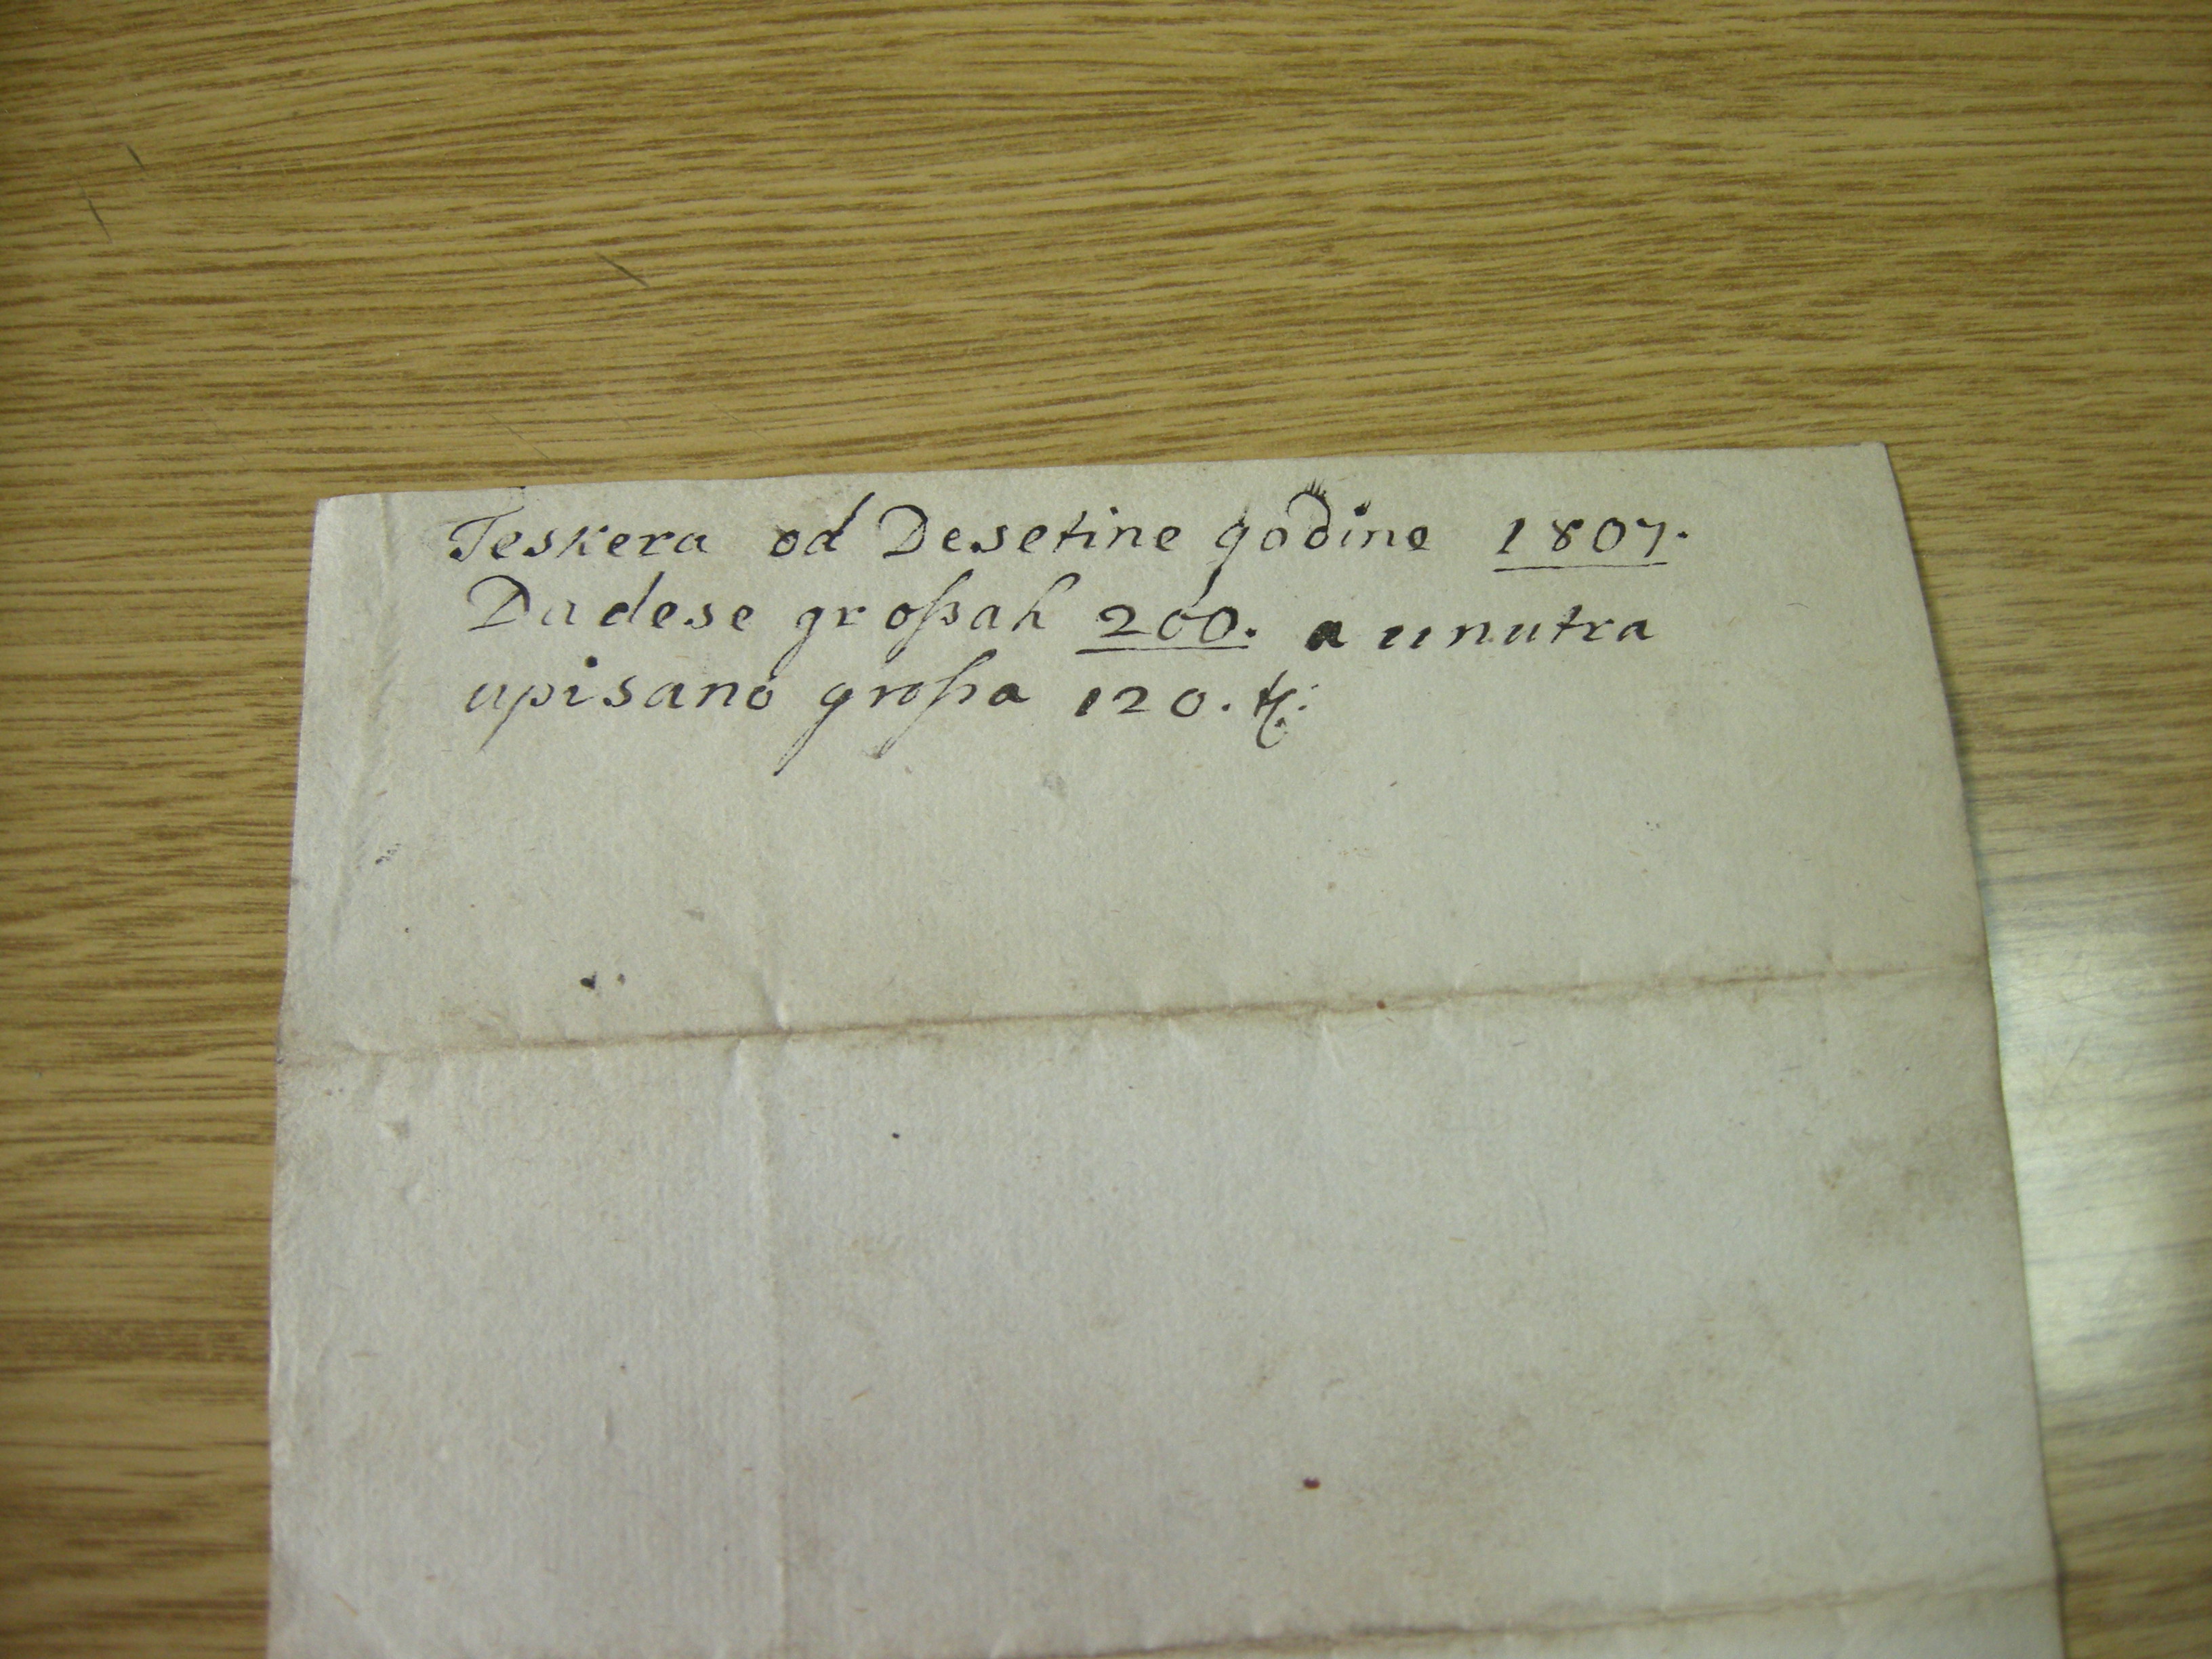 Teskera od Desetine godine 1807.
Dadese großah 200. a unutra
upisano großa 120.